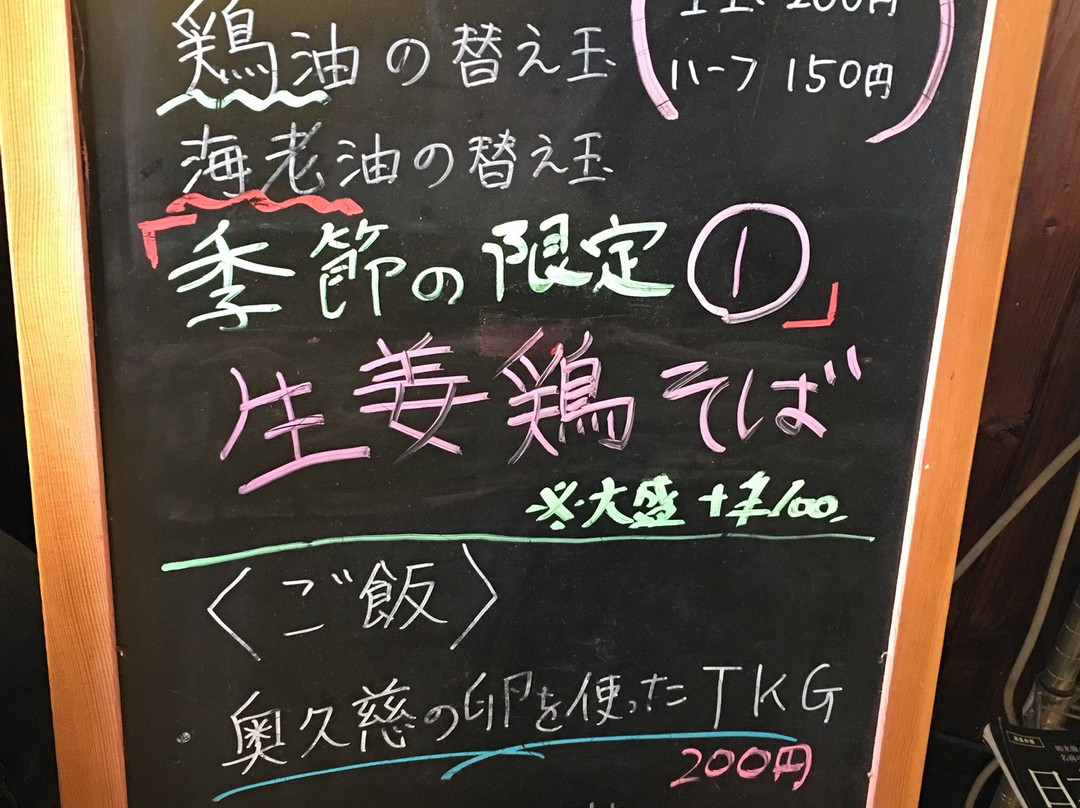 鶏油の替え玉
200円
ハーフ 150円
海老油の替え玉
「季節の限定①」
生姜鶏そば
※大盛+¥100
〈ご飯〉
・奥久慈の卵を使ったTKG
200円